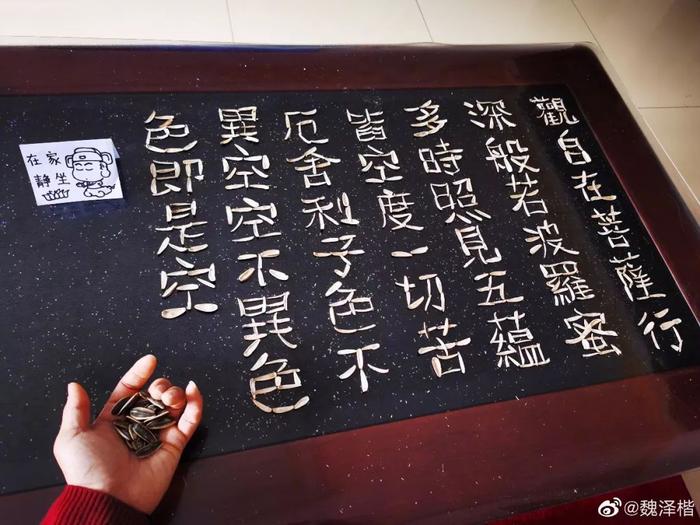 觀自在菩薩行
深般若波羅蜜
多時照見五蘊
皆空度一切苦
厄舍利子色不
異空空不異色
色即是空
在家
静生
@魏泽楷